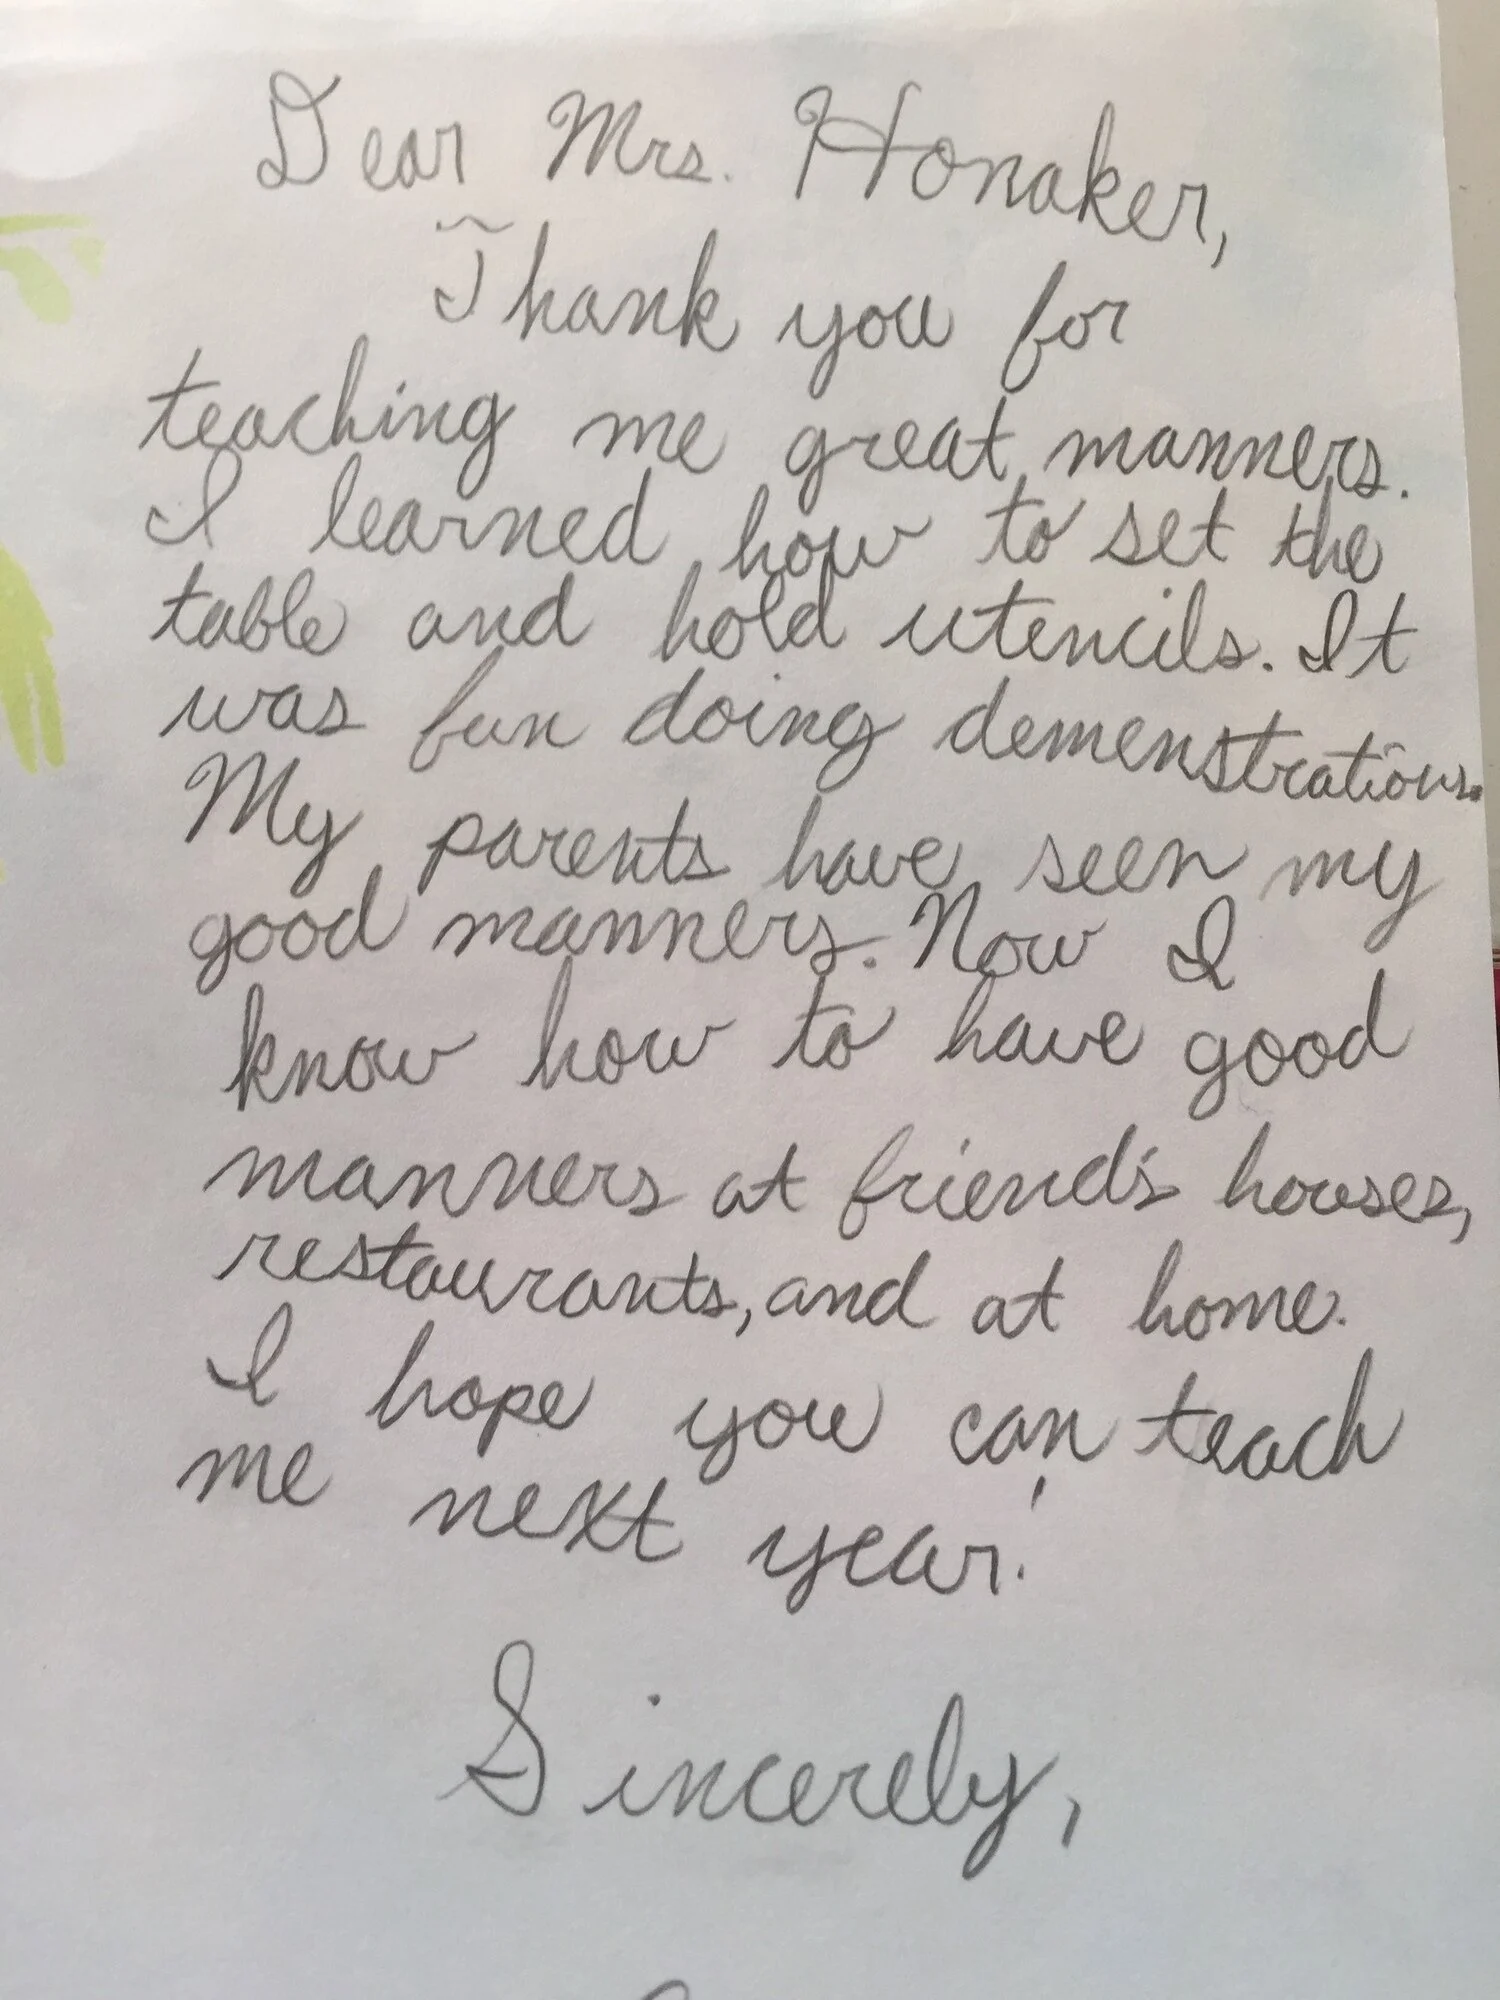 Dear Mrs. Honaker,
Thank you for
teaching me great manners.
I learned how to set the
table and hold utencils. It
was fun doing demenstrations.
My parents have seen my
good manners. Now I
know how to have good
manners at friend's houses,
restaurants, and at home.
I hope you can teach
me next year!
Sincerely,